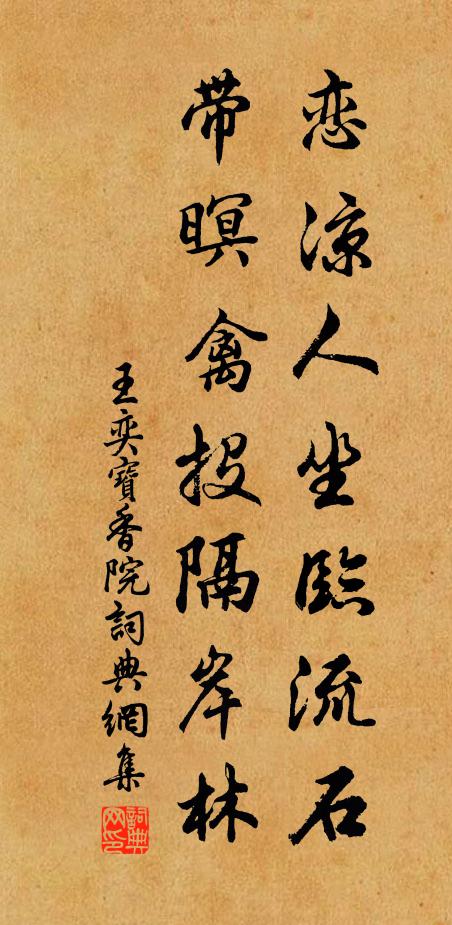 恋涼人坐臨流石
带暝禽投隔岸林
王奕寶香院詞典網集
詞典网印